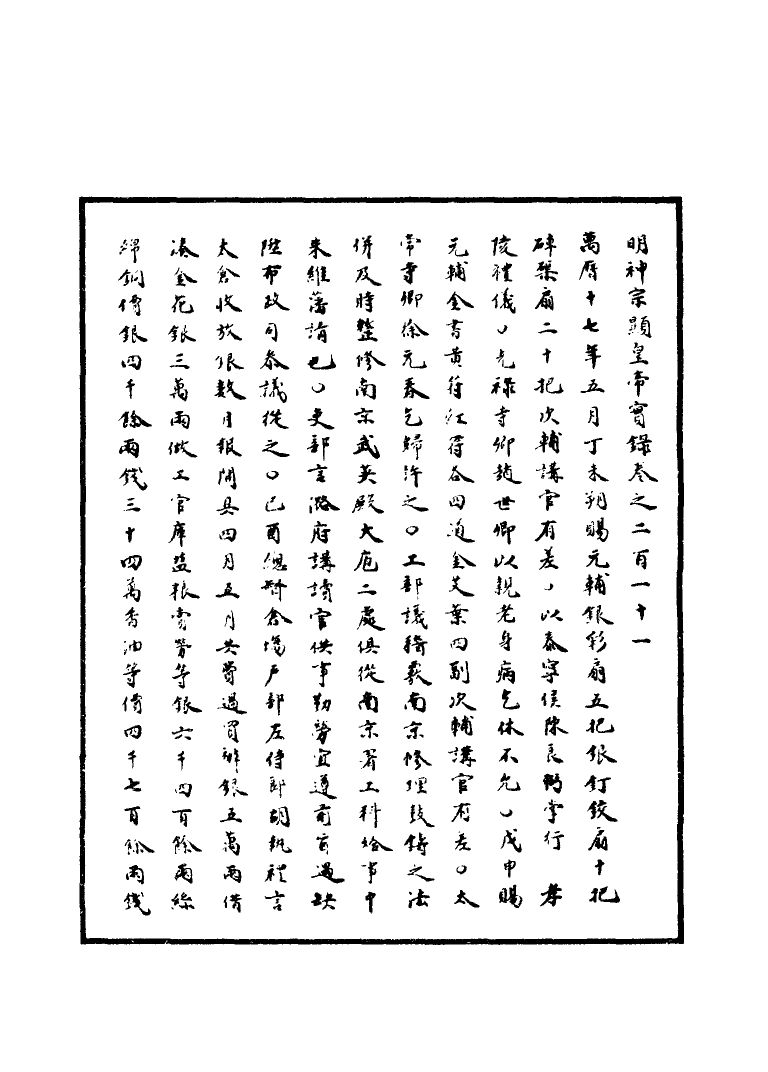 明神宗顯皇帝實錄卷之二百一十一
萬曆十七年五月丁未朔賜元輔銀彩扇五把銀釘鉸扇十把
碎聚扇二十把次輔講官有差○以泰寧侯陳良弼掌行 孝
陵禮儀○光祿寺卿趙世卿以親老身病乞休不允○戊申賜
元輔金書黃符江符各四道金艾葉四副次輔講官有差○太
常寺卿徐元春乞歸許之○工部議覆南京修理鼓鑄之法
併及時整修南京武英殿大庖二處俱從南京署工科給事中
朱維藩請也○吏部言潞府講讀官供事勤勞宜遵前旨遇缺
陞布政司叅議從之○己酉總督倉場戶部左侍郎胡執禮言
太倉收放銀數月報開具四月五月共費過買辦銀五萬兩借
湊金花銀三萬兩做工官庫監糧賞勞等銀六千四百餘兩絲
綿銅價銀四千餘兩錢三十四萬香油等價四千七百餘兩錢